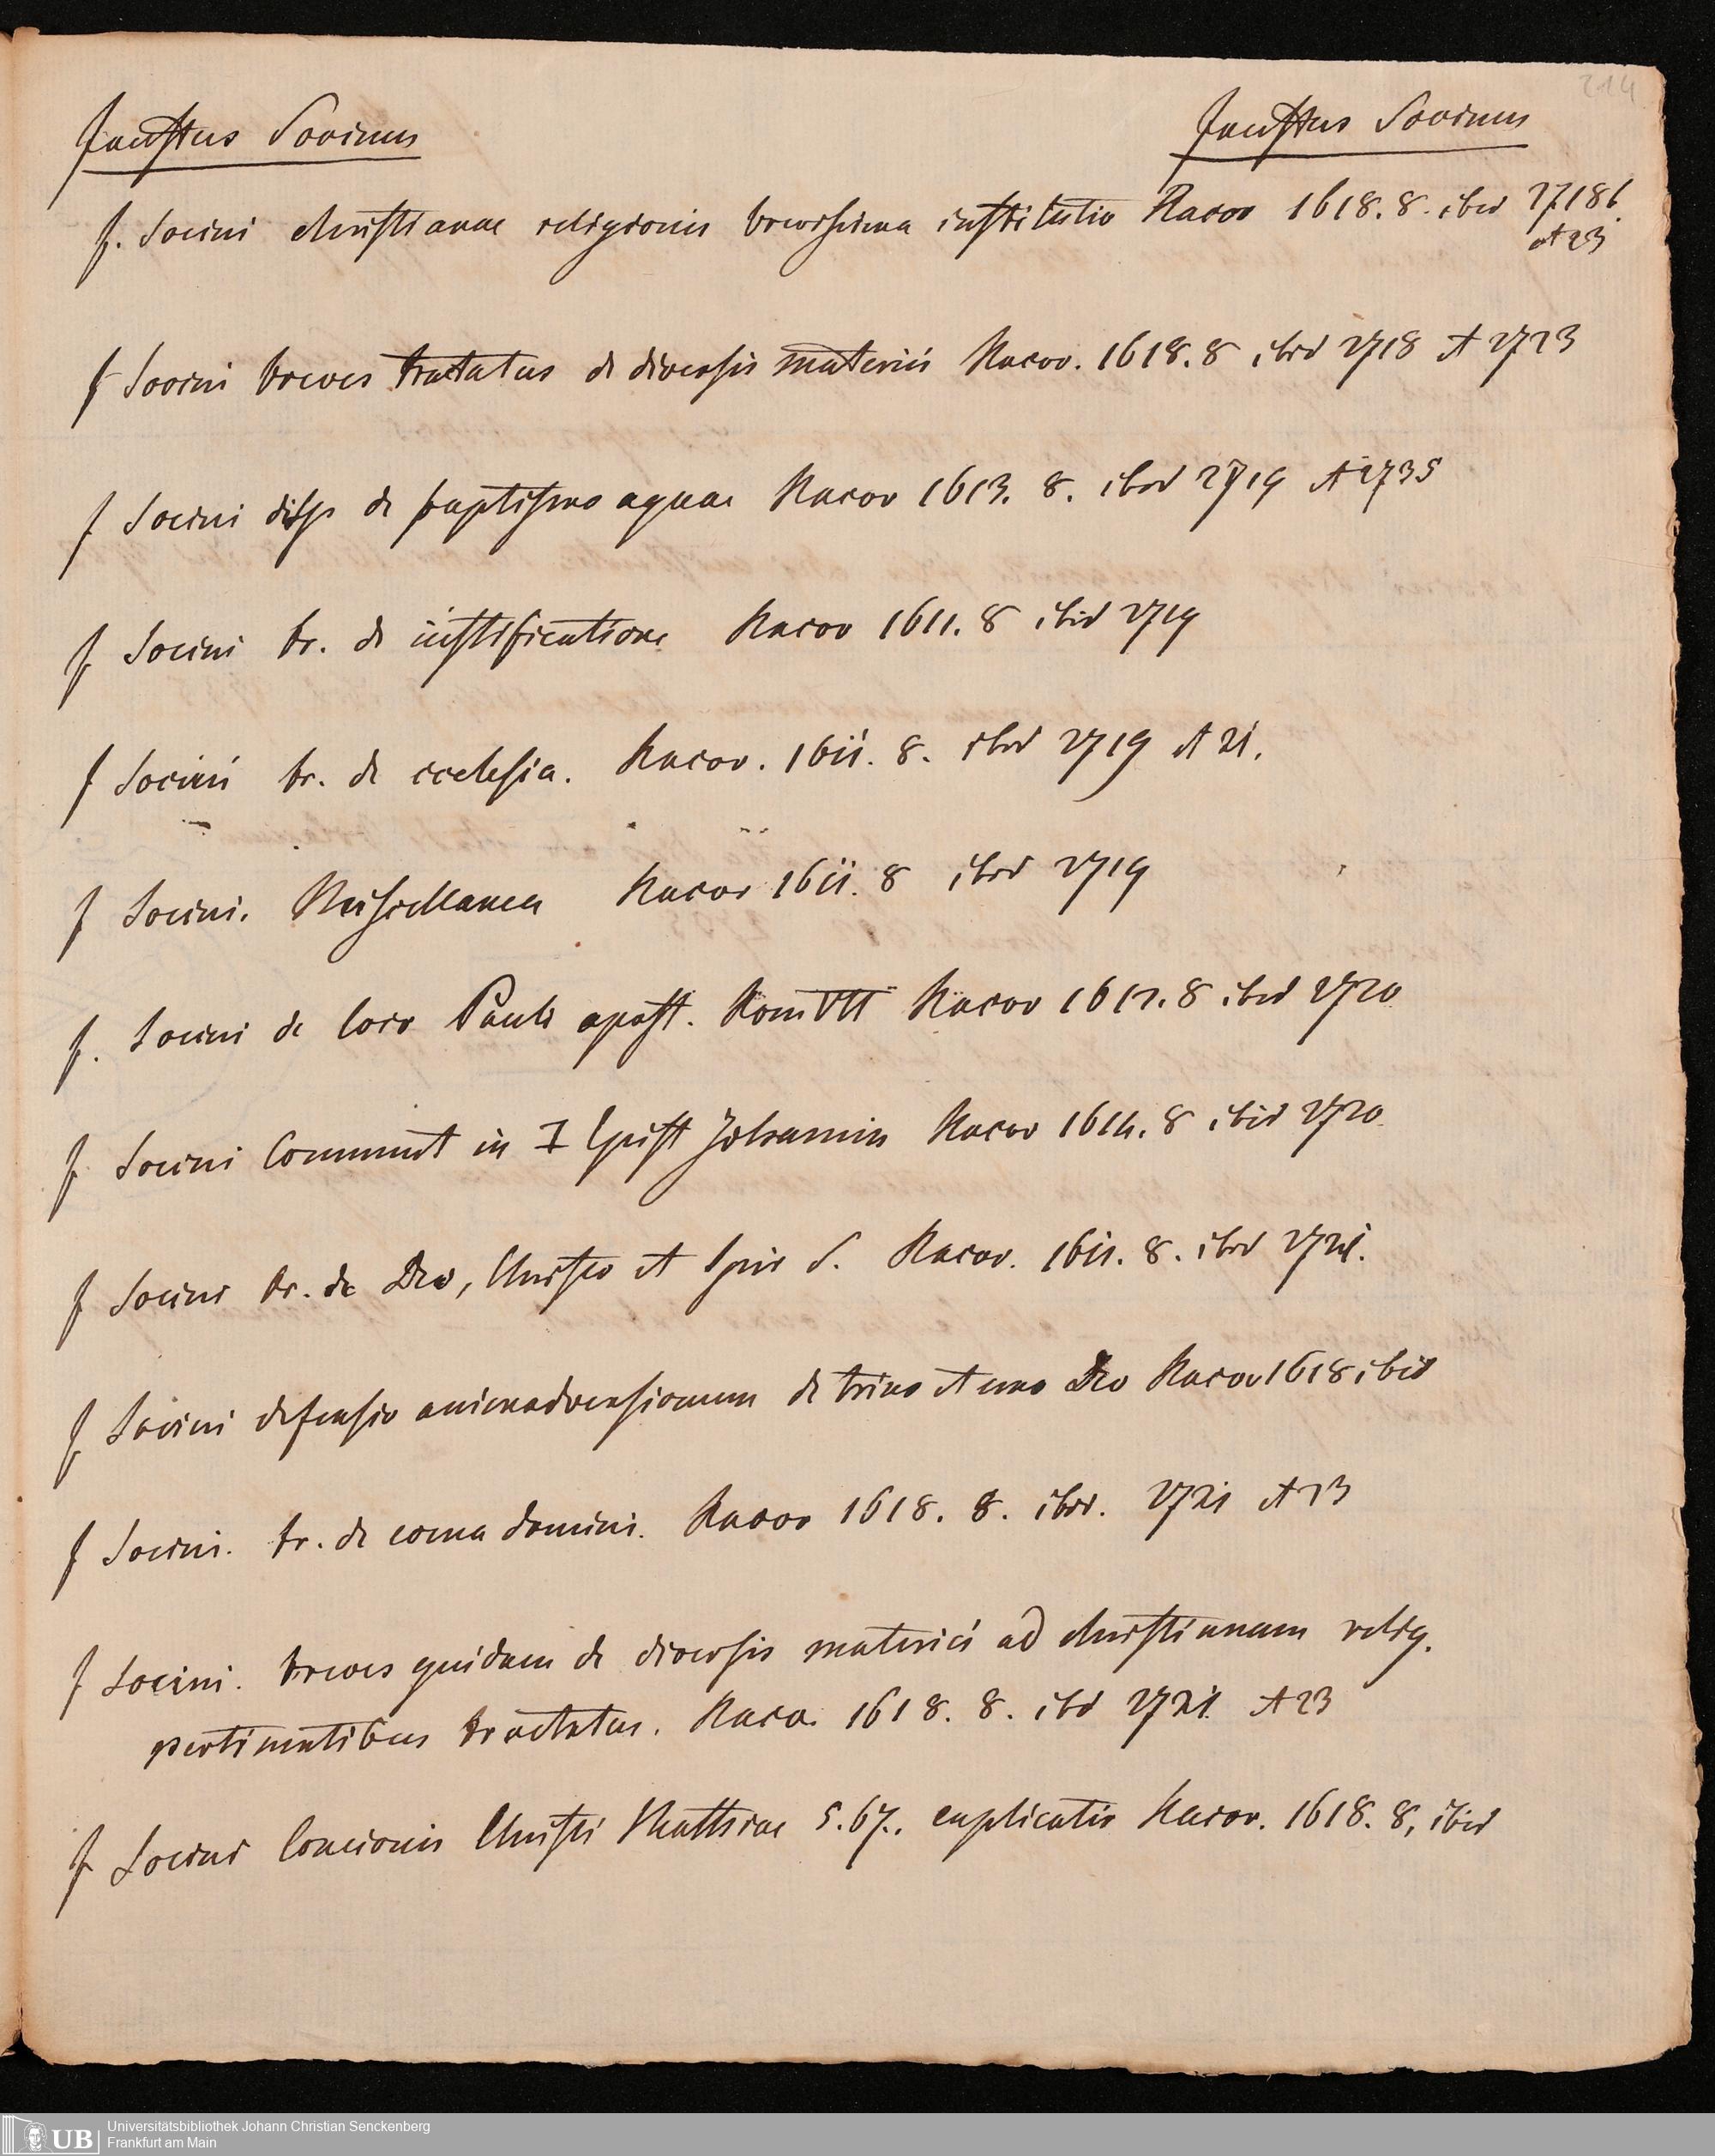 214
Faustus Socinus Faustus Socinus
F. Socini christianae religionis brevissima institutio Racov 1618. 8. ibid 27186.
et 23
F Socini breves tractatus de diversis materiis Racov. 1618. 8 ibid 2718 et 2723
F Socini disp de baptismo aquae Racov 1613. 8. ibid 2719 et 2735
F Socini tr. de iustificatione Racov 1611. 8 ibid 2719
F Socini tr. de ecclesia. Racov. 1611. 8. ibid 2719 et 21.
F Socini. Miscellanea Racov 1611. 8 ibid 2719
F. Socini de loco Pauli apost. Rom VII Racov 1612. 8 ibid 2720
F Socini Comment in I Epist Johannis Racov 1614. 8 ibid 2720
F Socini tr. de Deo, Christo et Spir S. Racov. 1611. 8. ibid 2721.
F Socini defensio animadversionum de trino et uno Deo Racov 1618 ibid
F Socini. tr. de coena domini. Racov 1618. 8. ibid. 2721 et 23
F Socini. breves quidam de diversis materiis ad christianam relig.
pertinentibus tractatus. Raco. 1618. 8. ibd 2721 et 23
F Socini Concionis Christi Matthiae 5. 67. explicatio Racov. 1618. 8, ibid
UB Universitätsbibliothek Johann Christian Senckenberg
Frankfurt am Main